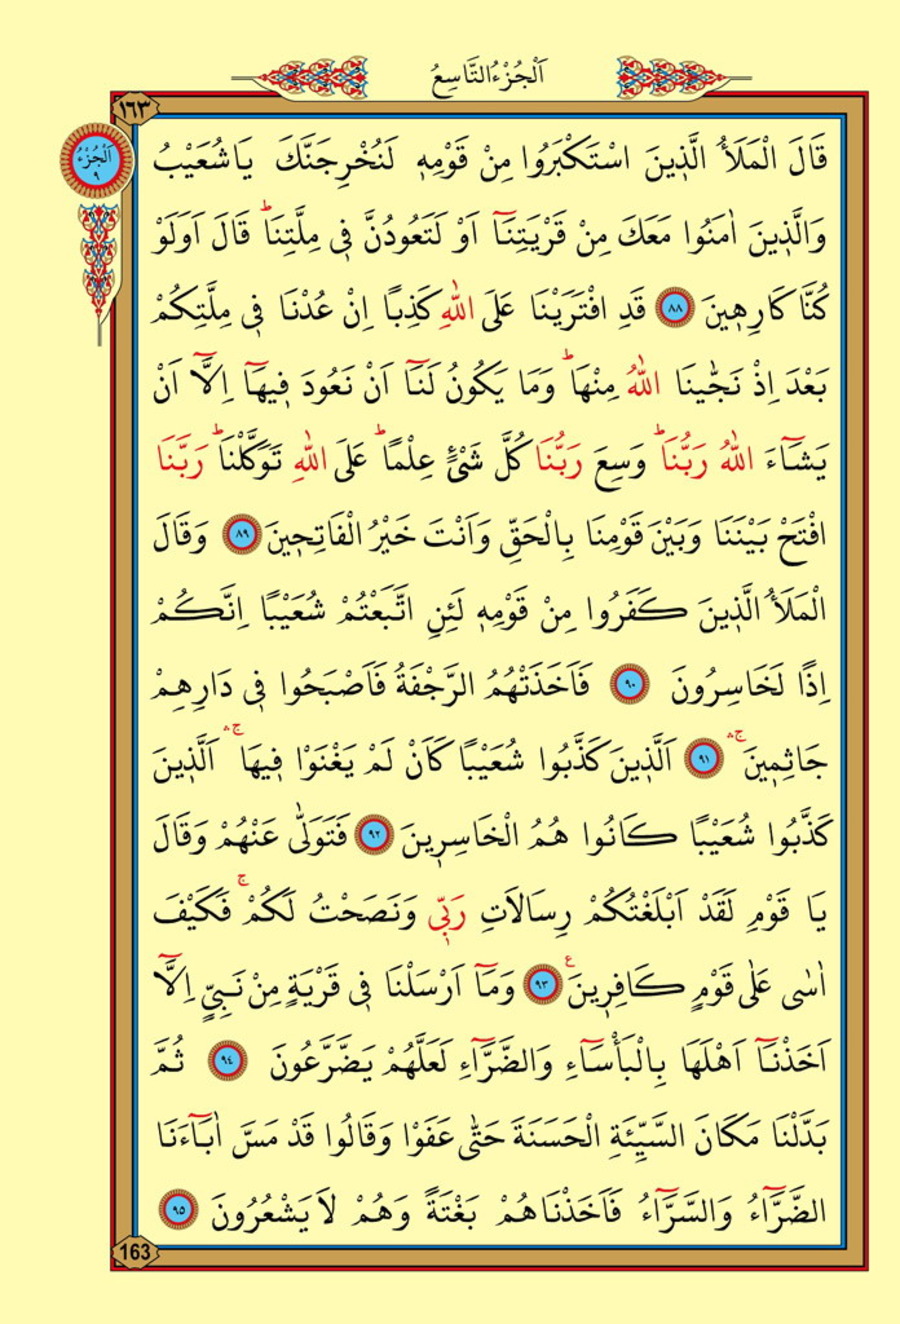 اَلْجُزْءُ التَّاسِعُ
١٦٣
اَلْجُزْءُ
٩
قَالَ الْمَلَأُ الَّذ۪ينَ اسْتَكْبَرُوا مِنْ قَوْمِه۪ لَنُخْرِجَنَّكَ يَاشُعَيْبُ
وَالَّذ۪ينَ اٰمَنُوا مَعَكَ مِنْ قَرْيَتِنَٓا اَوْ لَتَعُودُنَّ ف۪ي مِلَّتِنَاۜ قَالَ اَوَلَوْ
كُنَّا كَارِه۪ينَ ٨٨ قَدِ افْتَرَيْنَا عَلَى اللّٰهِ كَذِبًا اِنْ عُدْنَا ف۪ي مِلَّتِكُمْ
بَعْدَ اِذْ نَجّٰينَا اللّٰهُ مِنْهَاۜ وَمَا يَكُونُ لَنَٓا اَنْ نَعُودَ ف۪يهَٓا اِلَّٓا اَنْ
يَشَٓاءَ اللّٰهُ رَبُّنَاۜ وَسِعَ رَبُّنَا كُلَّ شَيْءٍ عِلْمًاۜ عَلَى اللّٰهِ تَوَكَّلْنَاۜ رَبَّنَا
افْتَحْ بَيْنَنَا وَبَيْنَ قَوْمِنَا بِالْحَقِّ وَاَنْتَ خَيْرُ الْفَاتِح۪ينَ ٨٩ وَقَالَ
الْمَلَأُ الَّذ۪ينَ كَفَرُوا مِنْ قَوْمِه۪ لَئِنِ اتَّبَعْتُمْ شُعَيْبًا اِنَّكُمْ
اِذًا لَخَاسِرُونَ ٩٠ فَاَخَذَتْهُمُ الرَّجْفَةُ فَاَصْبَحُوا ف۪ي دَارِهِمْ
جَاثِم۪ينَۚۛ ٩١ اَلَّذ۪ينَ كَذَّبُوا شُعَيْبًا كَاَنْ لَمْ يَغْنَوْا ف۪يهَاۚۛ اَلَّذ۪ينَ
كَذَّبُوا شُعَيْبًا كَانُوا هُمُ الْخَاسِر۪ينَ ٩٢ فَتَوَلّٰى عَنْهُمْ وَقَالَ
يَا قَوْمِ لَقَدْ اَبْلَغْتُكُمْ رِسَالَاتِ رَبّ۪ي وَنَصَحْتُ لَكُمْۚ فَكَيْفَ
اٰسٰى عَلٰى قَوْمٍ كَافِر۪ينَ۟ ٩٣ وَمَٓا اَرْسَلْنَا ف۪ي قَرْيَةٍ مِنْ نَبِيٍّ اِلَّٓا
اَخَذْنَٓا اَهْلَهَا بِالْبَأْسَٓاءِ وَالضَّرَّٓاءِ لَعَلَّهُمْ يَضَّرَّعُونَ ٩٤ ثُمَّ
بَدَّلْنَا مَكَانَ السَّيِّئَةِ الْحَسَنَةَ حَتّٰى عَفَوْا وَقَالُوا قَدْ مَسَّ اٰبَٓاءَنَا
الضَّرَّٓاءُ وَالسَّرَّٓاءُ فَاَخَذْنَاهُمْ بَغْتَةً وَهُمْ لَا يَشْعُرُونَ ٩٥
163